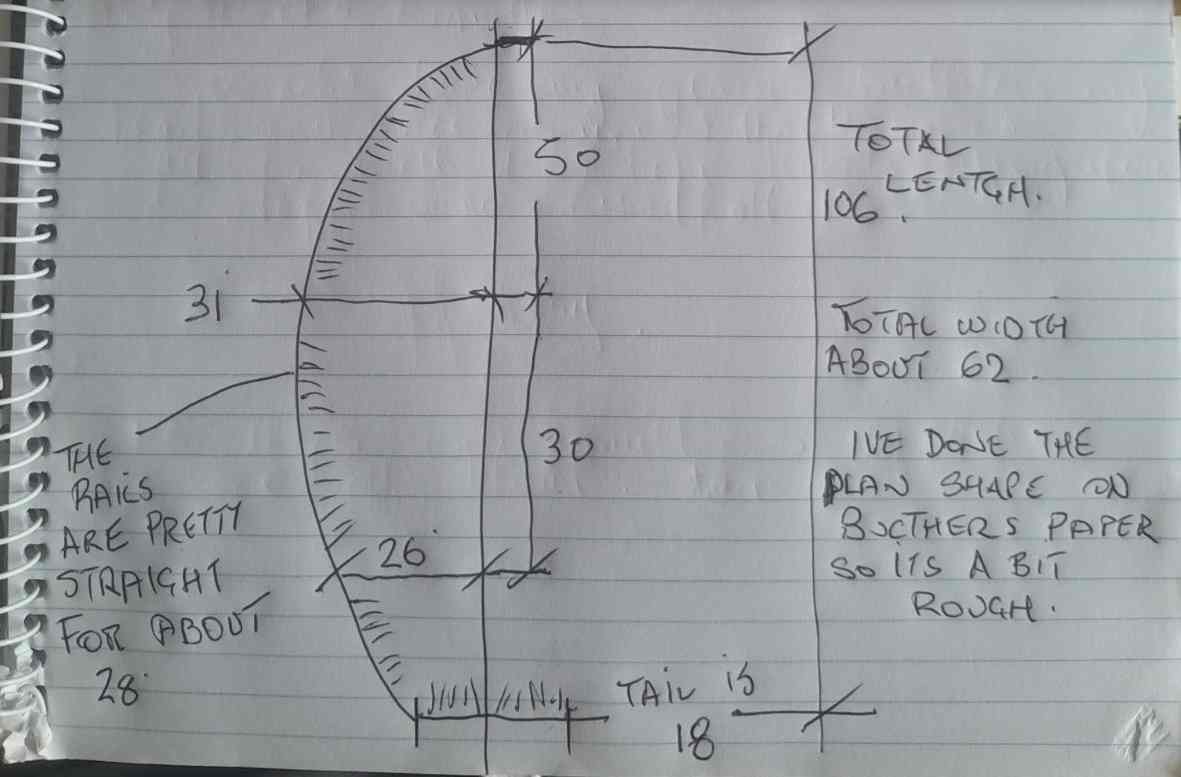 50
TOTAL
LENTGH.
106.
31
TOTAL WIDTH
ABOUT 62.
30
IVE DONE THE
PLAN SHAPE ON
BUCTHERS PAPER
SO ITS A BIT
ROUGH.
THE
RAILS
ARE PRETTY
STRAIGHT
FOR ABOUT
28
26
TAIL is
18